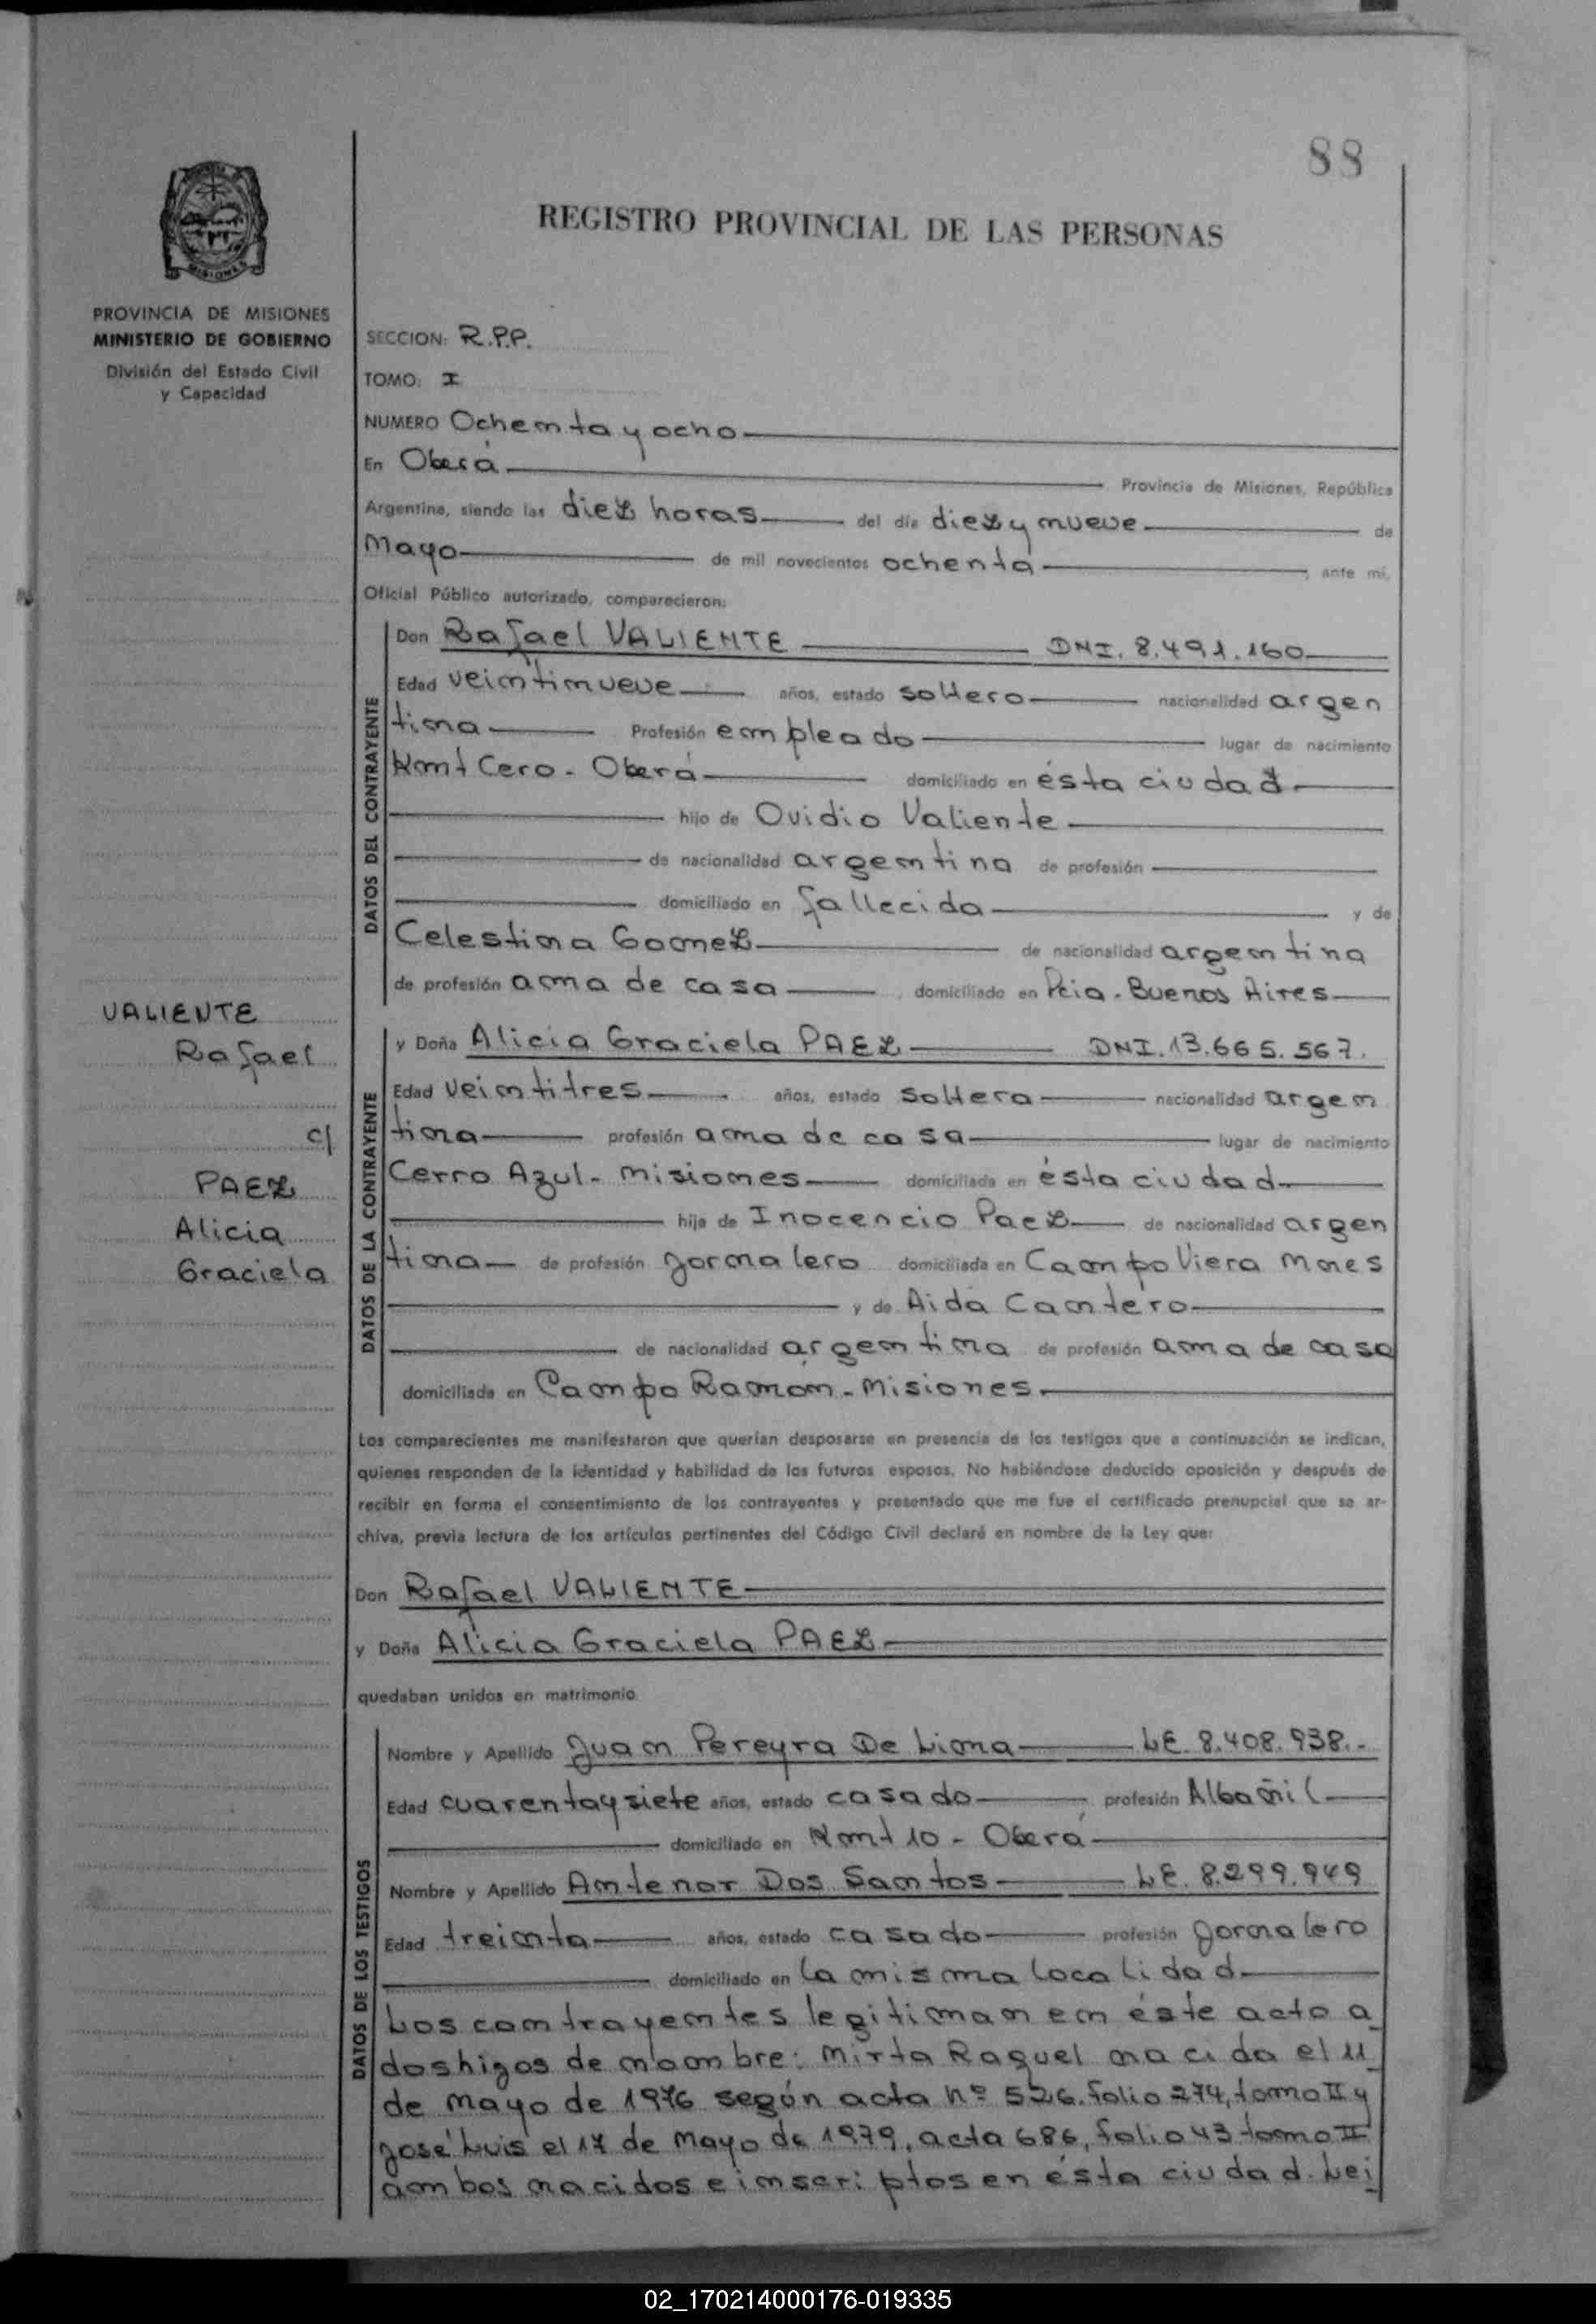 88
REGISTRO PROVINCIAL DE LAS PERSONAS
MISIONES
PROVINCIA DE MISIONES
MINISTERIO DE GOBIERNO
División del Estado Civil
y Capacidad
SECCION: R.P.P.
TOMO: I
NUMERO Ochenta y ocho
En Oberá Provincia de Misiones, República
Argentina, siendo las diez horas del día diez y nueve de
Mayo de mil novecientos ochenta, ante mí,
Oficial Público autorizado, comparecieron:
DATOS DEL CONTRAYENTE
Don Rafael VALIENTE DNI. 8.491.160
Edad veintinueve años, estado soltero nacionalidad argen
tina Profesión empleado lugar de nacimiento
Kmt Cero - Oberá domiciliado en ésta ciudad
hijo de Ovidio Valiente
de nacionalidad argentina de profesión
domiciliado en fallecido y de
Celestina Gomez de nacionalidad argentina
de profesión ama de casa domiciliado en Pcia. Buenos Aires
VALIENTE
Rafael
c/
PAEZ
Alicia
Graciela
DATOS DE LA CONTRAYENTE
y Doña Alicia Graciela PAEZ DNI. 13.665.567.
Edad veintitres años, estado soltera nacionalidad argen
tina profesión ama de casa lugar de nacimiento
Cerro Azul - Misiones domiciliada en ésta ciudad
hija de Inocencio Paez de nacionalidad argen
tina de profesión jornalero domiciliado en Campo Viera Mnes
y de Aida Cantero
de nacionalidad argentina de profesión ama de casa
domiciliada en Campo Ramón - Misiones.
Los comparecientes me manifestaron que querían desposarse en presencia de los testigos que a continuación se indican,
quienes responden de la identidad y habilidad de los futuros esposos. No habiéndose deducido oposición y después de
recibir en forma el consentimiento de los contrayentes y presentado que me fue el certificado prenupcial que se ar-
chiva, previa lectura de los artículos pertinentes del Código Civil declaré en nombre de la Ley que:
Don Rafael VALIENTE
y Doña Alicia Graciela PAEZ
quedaban unidos en matrimonio
DATOS DE LOS TESTIGOS
Nombre y Apellido Juan Pereyra De Lima LE. 8.408.938.-
Edad cuarenta y siete años, estado casado profesión Albañil
domiciliado en Kmt 10 - Oberá
Nombre y Apellido Antenor Dos Santos LE. 8.299.949
Edad treinta años, estado casado profesión jornalero
domiciliado en la misma localidad
Los contrayentes legitiman en éste acto a
dos hijos de nombre: Mirta Raquel nacida el 11
de Mayo de 1976 según acta nº 526. folio 274, tomo II y
José Luis el 17 de Mayo de 1979, acta 686, folio 43 tomo II
ambos nacidos e inscriptos en ésta ciudad. Lei
02_170214000176-019335